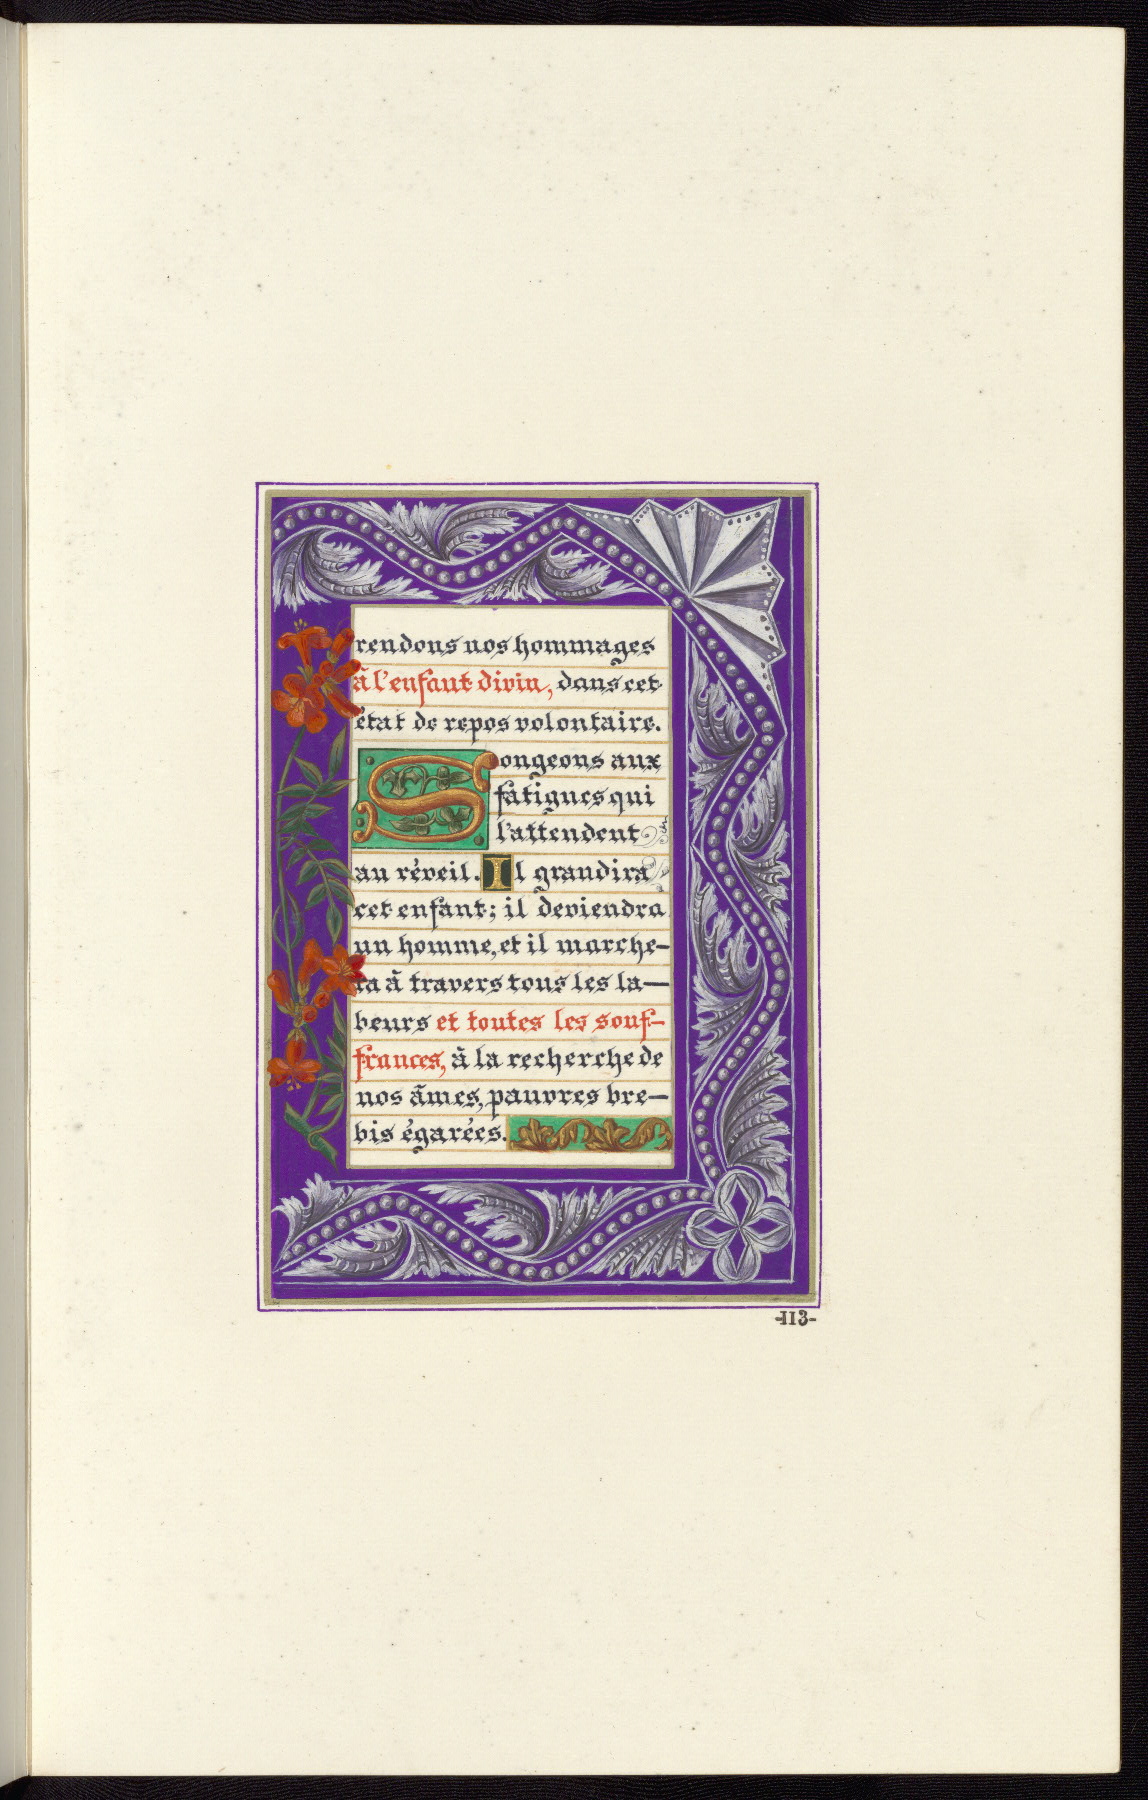 rendons nos hommages
à l'enfant divin, dans cet
état de repos volontaire.
Songeons aux
fatigues qui
l'attendent
au réveil. Il grandira
cet enfant; il deviendra
un homme, et il marche-
ra à travers tous les la-
beurs et toutes les souf-
frances, à la recherche de
nos âmes, pauvres bre-
bis égarées.
-113-